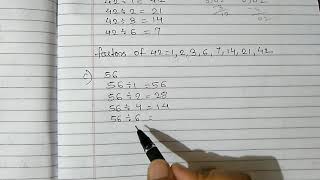 42÷1 = 42
42÷2 = 21
42÷3 = 14
42÷6 = 7
factors of 42=1,2,3,6,7,14,21,42
c) 56
56÷1 = 56
56÷2 = 28
56÷4 = 14
56÷6 =